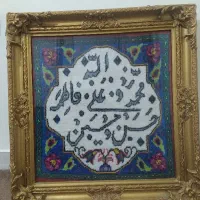 الله
محمد علی فاطمه
حسن و حسین